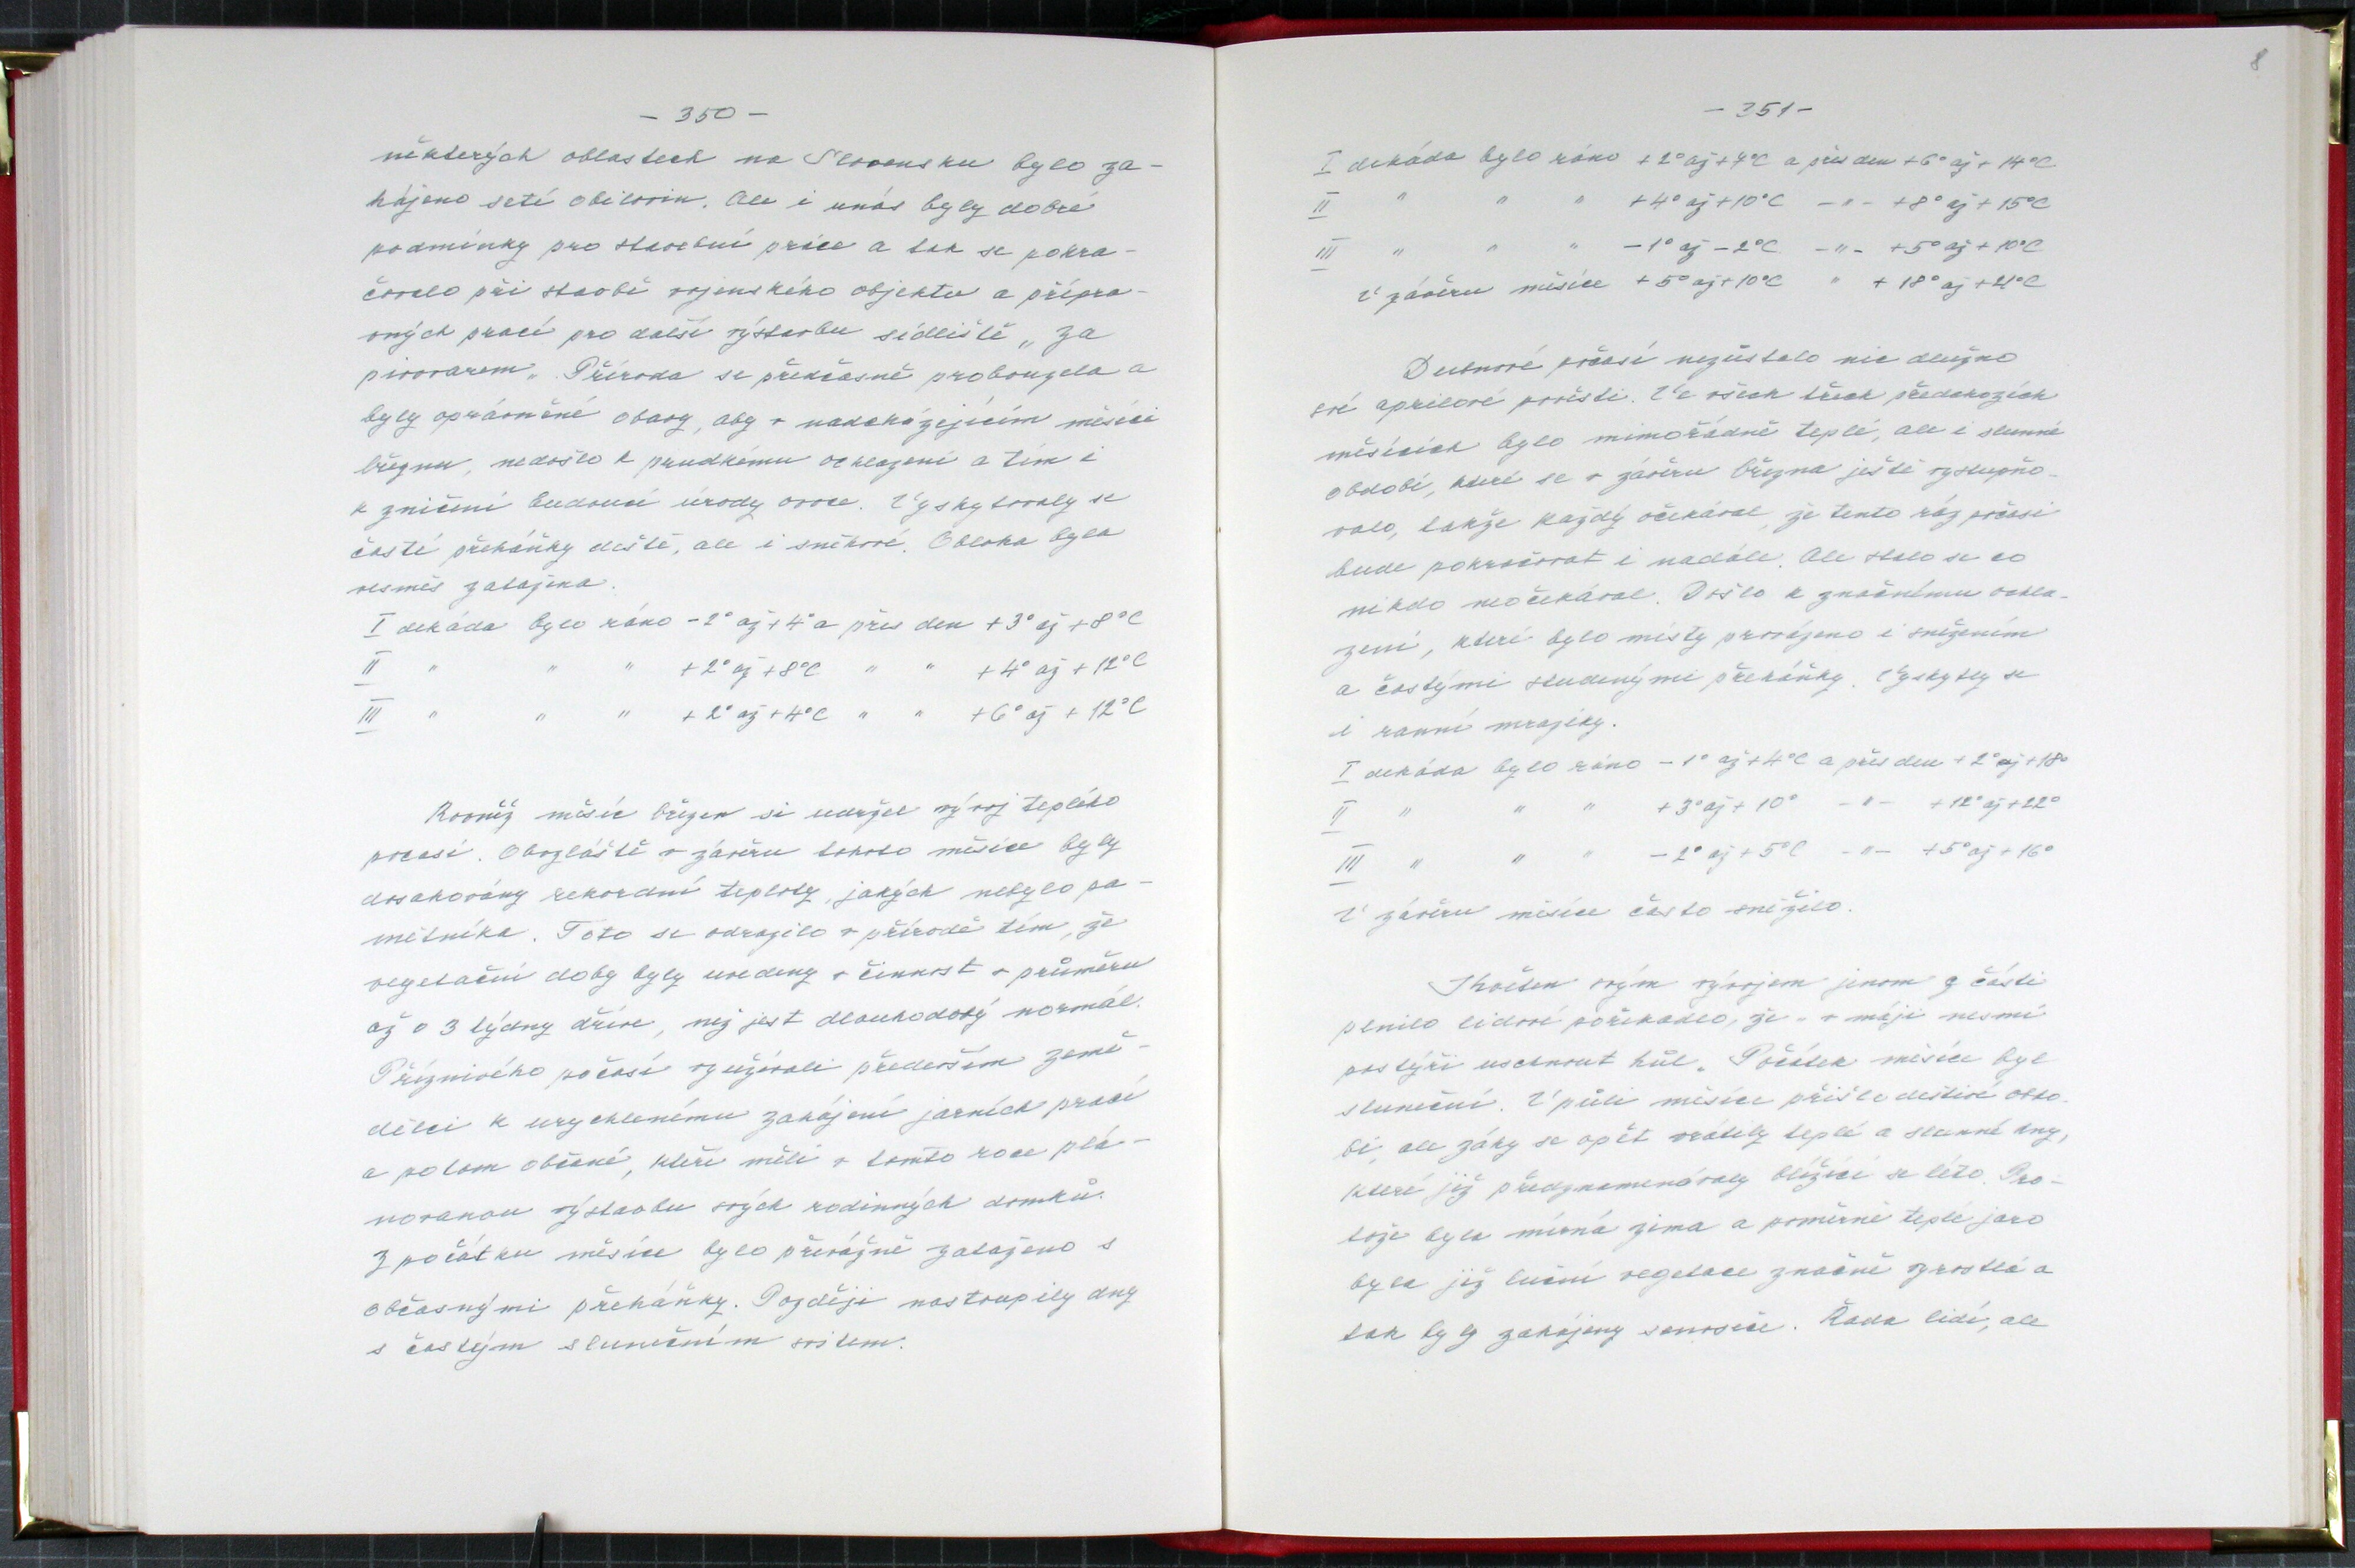 - 350 -
některých oblastech na Slovensku bylo za-
hájeno setí obilovin. Ale i unás byly dobré
podmínky pro stavební práce a tak se pokra-
čovalo při stavbě vojenského objektu a příprav-
ných prací pro další výstavbu sídliště „ Za
pivovarem„. Příroda se předčasně probouzela a
byly oprávněné obavy, aby v nadcházejícím měsíci
březnu, nedošlo k prudkému ochlazení a tím i
k zničení budoucí úrody ovoce. Vyskytovaly se
časté přeháňky deště, ale i sněhové. Obloha byla
vesměs zatažena.
I dekáda bylo ráno -2° až +4° a přes den +3° až +8°C
II " " " +2° až +8°C " " +4° až +12°C
III " " " +2° až +4°C " " +6° až +12°C
Rovněž měsíc březen si udržel vývoj teplého
počasí. Obzvláště v závěru tohoto měsíce byly
dosahovány rekordní teploty, jakých nebylo pa-
mětníka. Toto se odrazilo v přírodě tím, že
vegetační doby byly uvedeny v činnost v průměru
až o 3 týdny dříve, než jest dlouhodobý normál.
Příznivého počasí využívali především země-
dělci k urychlenému zahájení jarních prací
a potom občané, kteří měli v tomto roce plá-
novanou výstavbu svých rodinných domků.
Z počátku měsíce bylo převážně zataženo s
občasnými přeháňky. Později nastoupily dny
s častým slunečním svitem.
8
- 351 -
I dekáda bylo ráno +2° až +7°C a přes den +6° až + 14°C
II " " " +4° až +10°C -"- +8° až + 15°C
III " " " -1° až -2°C -"- +5° až + 10°C
V závěru měsíce +5° až +10°C " + 18° až +21°C
Dubnové počasí nezůstalo nic dlužno
své aprilové pověsti. Ve všech třech předchozích
měsících bylo mimořádně teplé, ale i slunné
období, které se v závěru března ještě vystupňo-
valo, takže každý očekával, že tento ráz počasí
bude pokračovat i nadále. Ale stalo se co
nikdo neočekával. Došlo k značnému ochla-
zení, které bylo místy provázeno i sněžením
a častými studenými přeháňky. Vyskytly se
i ranní mrazíky.
I dekáda bylo ráno -1° až +4°C a přes den +2° až +18°
II " " " +3° až + 10° -"- +12° až +22°
III " " " -2° až +5°C -"- +5° až + 16°
V závěru měsíce často sněžilo.
Květen svým vývojem jenom z části
plnilo lidové pořekadlo, že „ v máji nesmí
pastýři uschnout hůl„. Počátek měsíce byl
sluneční. V půli měsíce přišlo deštivé obdo-
bí, ale záhy se opět vrátily teplé a slunné dny,
které již předznamenávaly blížící se léto. Pro-
tože byla mírná zima a poměrně teplé jaro
byla již luční vegetace značně vzrostlá a
tak byly zahájeny senoseče. Řada lidí, ale